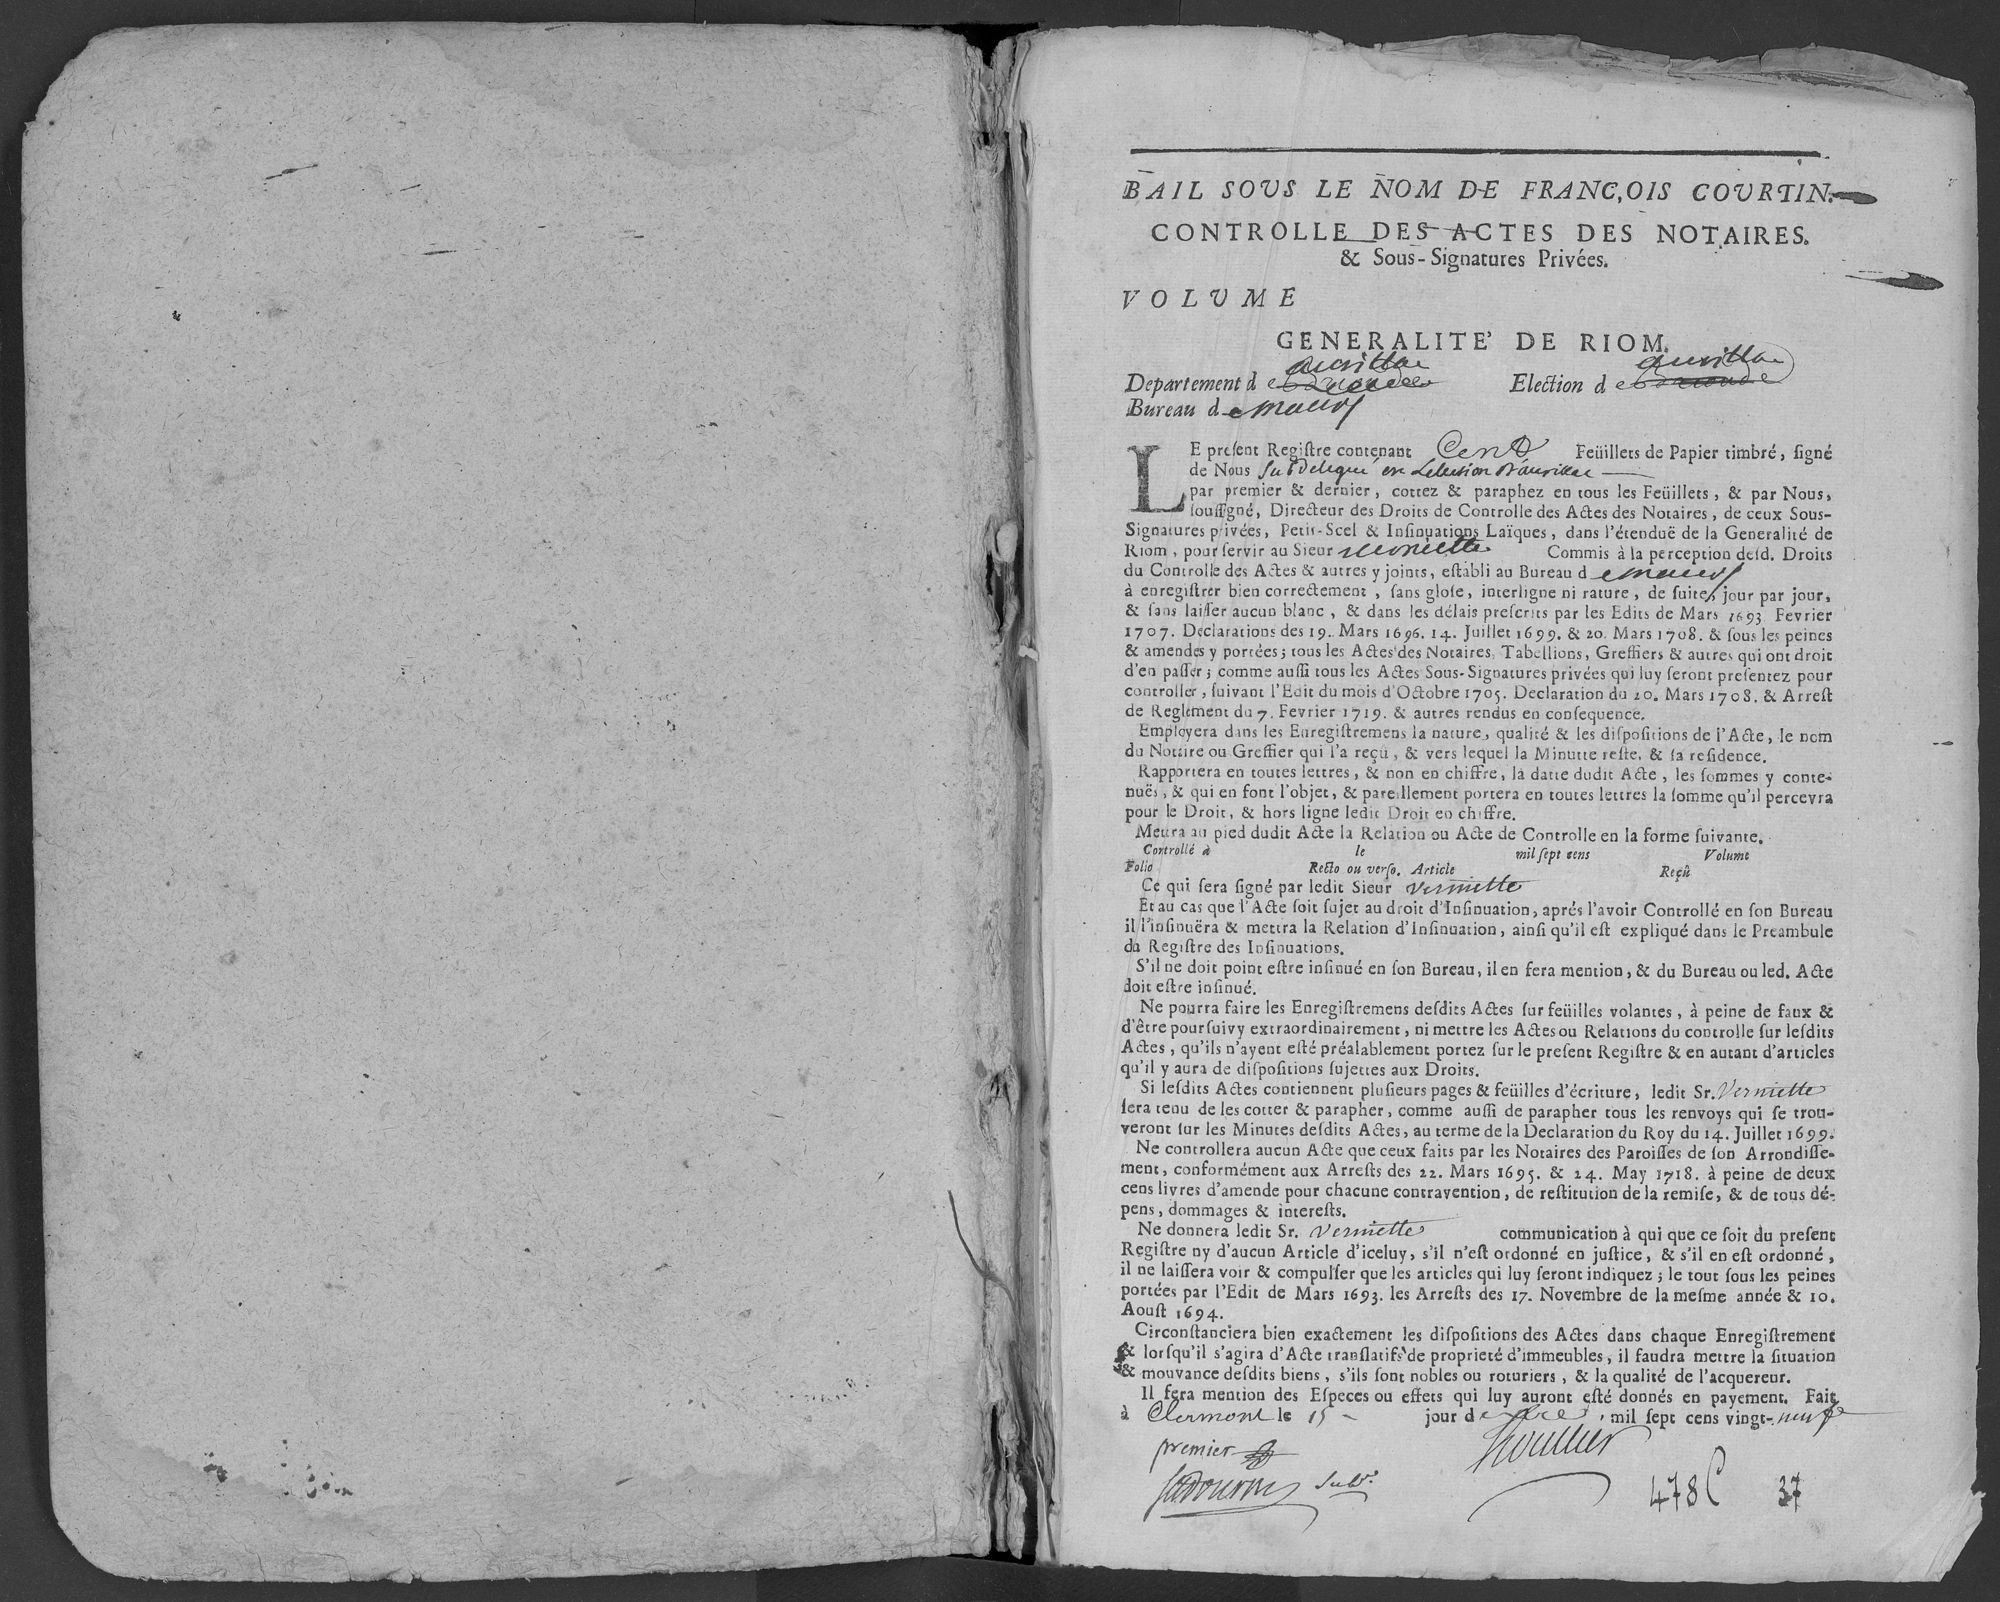 BAIL SOUS LE NOM DE FRANC,OIS COURTIN.
CONTROLLE DES ACTES DES NOTAIRES.
& Sous-Signatures Privées.
VOLUME
GENERALITE' DE RIOM.
aurillac aurillac
Departement d e Election d e
Bureau d e maurs
LE present Registre contenant Cent Feüillets de Papier timbré, signé
de Nous subdelegué en Lelection d'aurillac
par premier & dernier, cottez & paraphez en tous les Feüillets, & par Nous,
soussigné, Directeur des Droits de Controlle des Actes des Notaires, de ceux Sous-
Signatures privées, Petit-Scel & Insinuations Laïques, dans l'étenduë de la Generalité de
Riom, pour servir au Sieur vermette Commis à la perception desd. Droits
du Controlle des Actes & autres y joints, establi au Bureau d e maurs
à enregistrer bien correctement, sans glose, interligne ni rature, de suite, jour par jour,
& sans laisser aucun blanc, & dans les délais prescrits par les Edits de Mars 1693 Fevrier
1707. Declarations des 19. Mars 1696. 14. Juillet 1699. & 20. Mars 1708. & sous les peines
& amendes y portées; tous les Actes des Notaires, Tabellions, Greffiers & autres qui ont droit
d'en passer; comme aussi tous les Actes Sous-Signatures privées qui luy seront presentez pour
controller, suivant l'Edit du mois d'Octobre 1705. Declaration du 20. Mars 1708. & Arrest
de Reglement du 7. Fevrier 1719. & autres rendus en consequence.
Employera dans les Enregistremens la nature, qualité & les dispositions de l'Acte, le nom
du Notaire ou Greffier qui l'a reçu, & vers lequel la Minutte reste, & sa residence.
Rapportera en toutes lettres, & non en chiffre, la datte dudit Acte, les sommes y conte-
nuës, & qui en font l'objet, & pareillement portera en toutes lettres la somme qu'il percevra
pour le Droit, & hors ligne ledit Droit en chiffre.
Mettra au pied dudit Acte la Relation ou Acte de Controlle en la forme suivante.
Controllé à le mil sept cens Volume
Folio Recto ou verso. Article Reçû
Ce qui sera signé par ledit Sieur vermette
Et au cas que l'Acte soit sujet au droit d'Insinuation, aprés l'avoir Controllé en son Bureau
il l'insinuëra & mettra la Relation d'Insinuation, ainsi qu'il est expliqué dans le Preambule
du Registre des Insinuations.
S'il ne doit point estre insinué en son Bureau, il en fera mention, & du Bureau ou led. Acte
doit estre insinué.
Ne pourra faire les Enregistremens desdits Actes sur feüilles volantes, à peine de faux &
d'être poursuivy extraordinairement, ni mettre les Actes ou Relations du controlle sur lesdits
Actes, qu'ils n'ayent esté préalablement portez sur le present Registre & en autant d'articles
qu'il y aura de dispositions sujettes aux Droits.
Si lesdits Actes contiennent plusieurs pages & feüilles d'écriture, ledit Sr. vermette
sera tenu de les cotter & parapher, comme aussi de parapher tous les renvoys qui se trou-
veront sur les Minutes desdits Actes, au terme de la Declaration du Roy du 14. Juillet 1699.
Ne controllera aucun Acte que ceux faits par les Notaires des Paroisses de son Arrondisse-
ment, conformément aux Arrests des 22. Mars 1695. & 24. May 1718. à peine de deux
cens livres d'amende pour chacune contravention, de restitution de la remise, & de tous dé-
pens, dommages & interests.
Ne donnera ledit Sr. vermette communication à qui que ce soit du present
Registre ny d'aucun Article d'iceluy, s'il n'est ordonné en justice, & s'il en est ordonné,
il ne laissera voir & compulser que les articles qui luy seront indiquez; le tout sous les peines
portées par l'Edit de Mars 1693. les Arrests des 17. Novembre de la mesme année & 10.
Aoust 1694.
Circonstanciera bien exactement les dispositions des Actes dans chaque Enregistrement
& lorsqu'il s'agira d'Acte translatifs de proprieté d'immeubles, il faudra mettre la situation
& mouvance desdits biens, s'ils sont nobles ou roturiers, & la qualité de l'acquereur.
Il fera mention des Especes ou effets qui luy auront esté donnés en payement. Fait
à Clermont le 15 jour d mil sept cens vingt-neuf
premier
478C 37